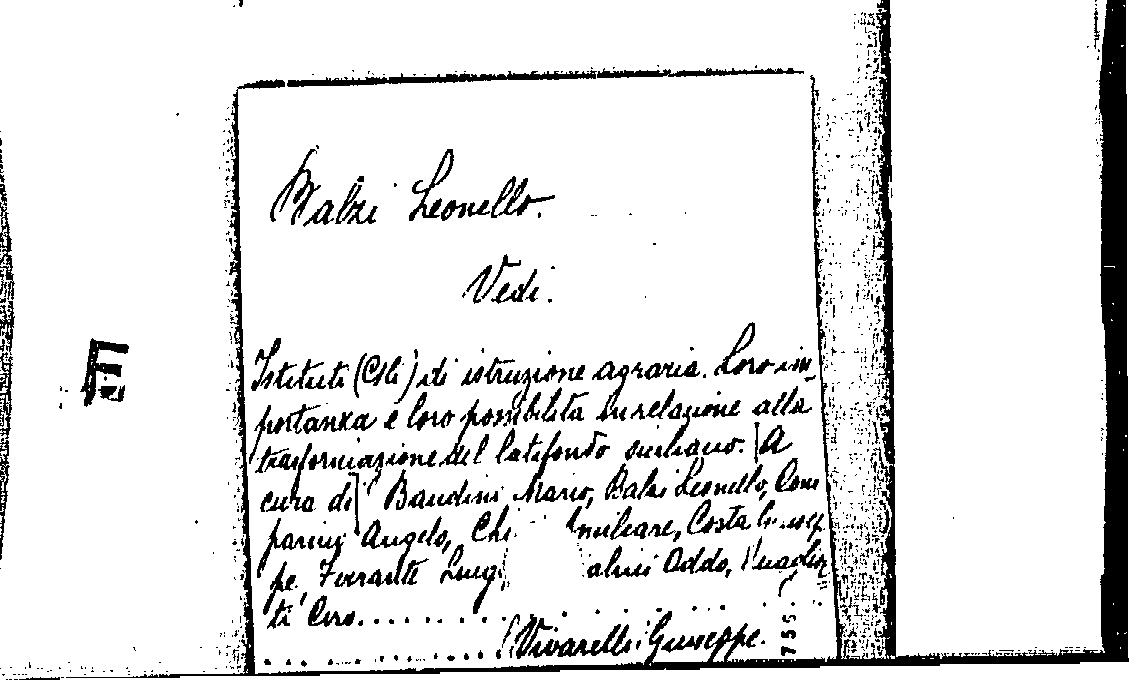 Balzi Leonello.
Vedi.
Istituti (Gli) di istruzione agraria. Loro im-
portanza e loro possibilità in relazione alla
trasformazione del latifondo siciliano. [A
cura di] Bandini Mario, Balzi Leonello, Com
parini Angelo, Chi Amilcare, Costa Giusep
pe, Ferrante Luigi alini Oddo,
ti Ciro..........
............ (Vivarelli Giuseppe.
755.